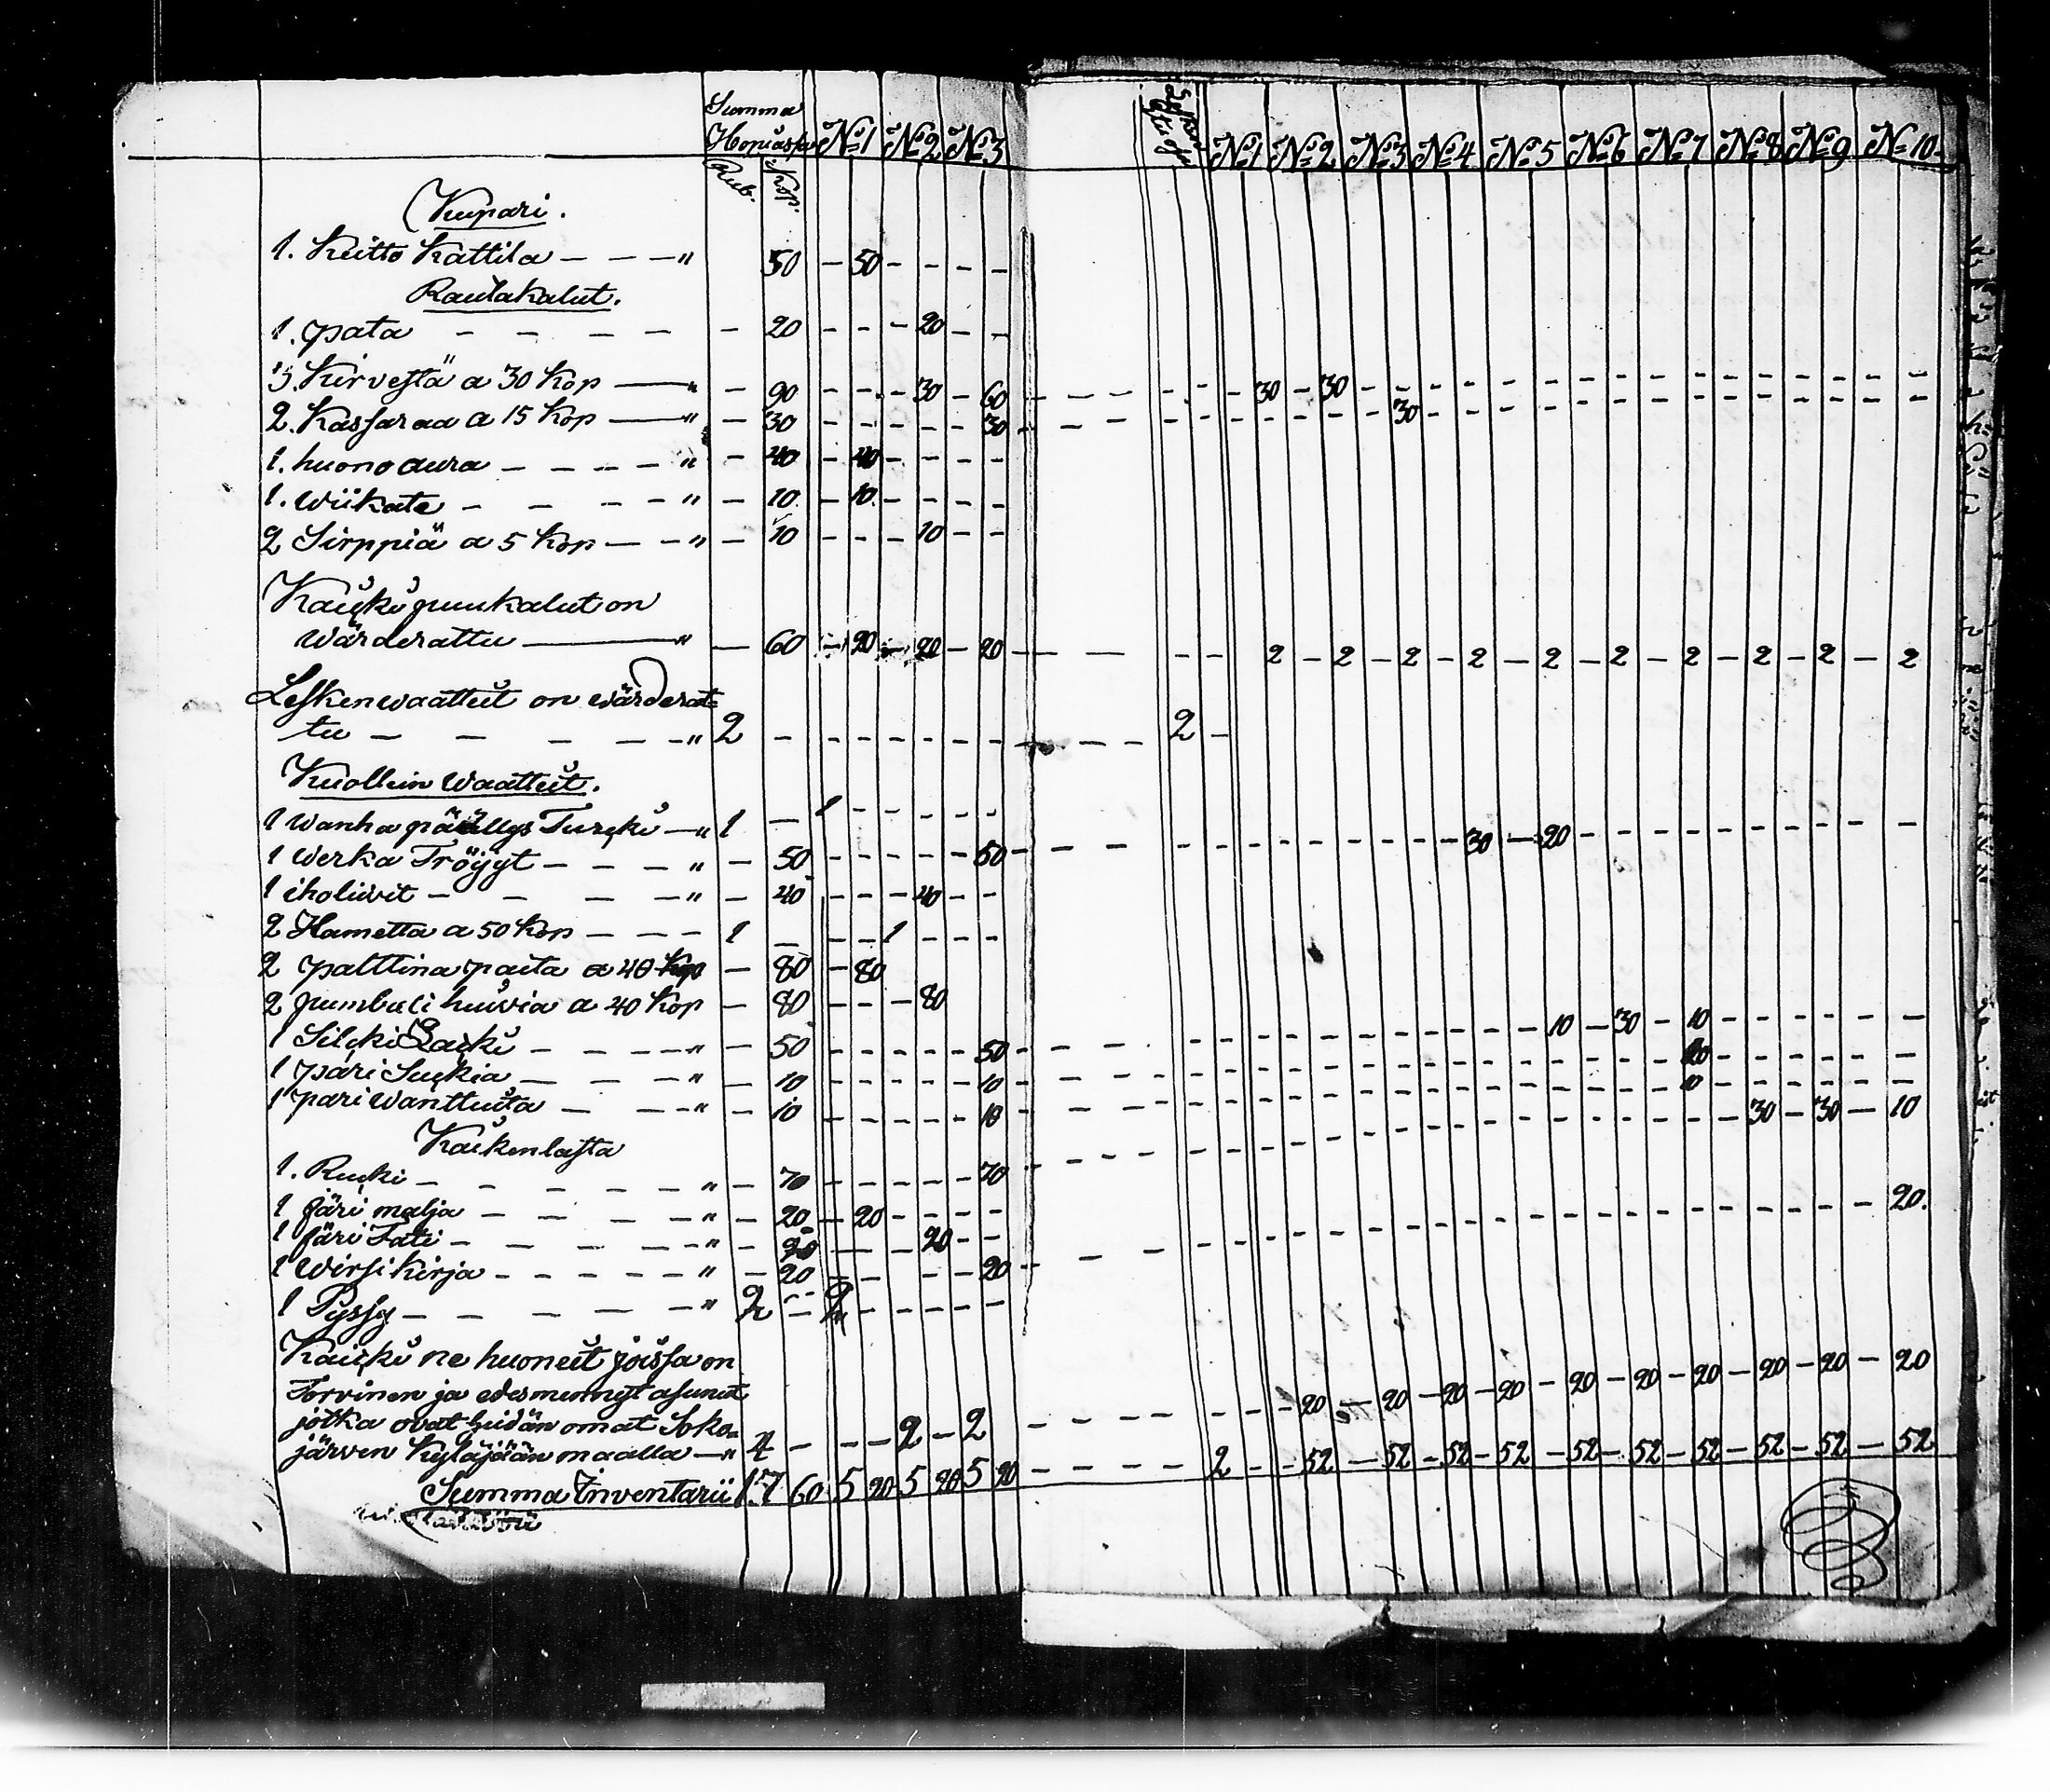 Summa
Hopiassa № 1 № 2 № 3
Rub. Kop.
Kupari.
1. Keitto Kattila — — — " 50 — 50 — — — —
Rautakalut.
1. pata — — — — — 20 — — — 20 — —
3. Kirvestä a 30 Kop — " — 90 — — — 30 — 60
2. Kassaraa a 15 Kop — " — 30 — — — — — 30
1. huono aura — — — — " — 40 — 40 — — — —
1. Wiikate — — — — " — 10 — 10 — — — —
2 Sirppiä a 5 Kop — — " — 10 — — — 10 — —
Kaikki puukalut on
Wärderattu — " — 60 — 20 — 20 — 20
Lesken waatteet on wärderat=
tu — — — — " 2 — — — — — — —
Kuollein Waatteet.
1 Wanha päällys Turkki — " 1 — 1 — — — — —
1 Werka Tröijyt — — — " — 50 — — — — — 50
1 iholiivit — — — — " — 40 — — — 40 — —
2 Hametta a 50 Kop — — — 1 — — — 1 — — —
2 palttina paita a 40 Kop — 80 — 80
2 pumbuli huivia a 40 Kop — 80 — — — 80
1 Silkki — — — " — 50 — — — — — 50
1 pari Sukkia — — — " — 10 — — — — — 10
1 pari Wanttuita — — — " — 10 — — — — — 10
Kaikenlasta
1. Rukki — — — — — " — 70 — — — — — 70
1 färi malja — — — — " — 20 — 20 — — — —
1 färi Fati — — — — — " — 20 — — — 20 — —
1 Wirsi Kirja — — — — — " — 20 — — — — 20
1 Pyssy — — — — — " 2 — 2 — — — — —
Kaikki ne huoneet joissa on
Torvinen ja edesmennyt asunut
jotka ovat heidän omat Soka=
järven Kyläjään maalla — " 4 — — — 2 — 2
Summa Inventarii 17 60 5 20 5 20 5 20
№ 1 № 2 № 3 № 4 № 5 № 6 № 7 № 8 № 9 № 10
— — — — 30 — 30 — — — — — — — — — —
— — — — — — — 30 — — — — — — — — — —
— — — — 2 — 2 — 2 — 2 — 2 — 2 — 2 — 2 — 2 — 2
— — — 2 —
— — — — — — — — 30 — 20 — — — — — — —
— — — — — — — — — 10 — 30 — 10 — — — —
— — — — — — — — — — — — 20 — — — —
— — — — — — — — — — — — 10 — — — —
— — — — — — — — — — — — — 30 — 30 — 10
— — — — — — — — — — — — — — — — 20.
— — — — — 20 — 20 — 20 — 20 — 20 — 20 — 20 — 20 — 20 — 20
— — — — 2 — — 52 — 52 — 52 — 52 — 52 — 52 — 52 — 52 — 52 — 52